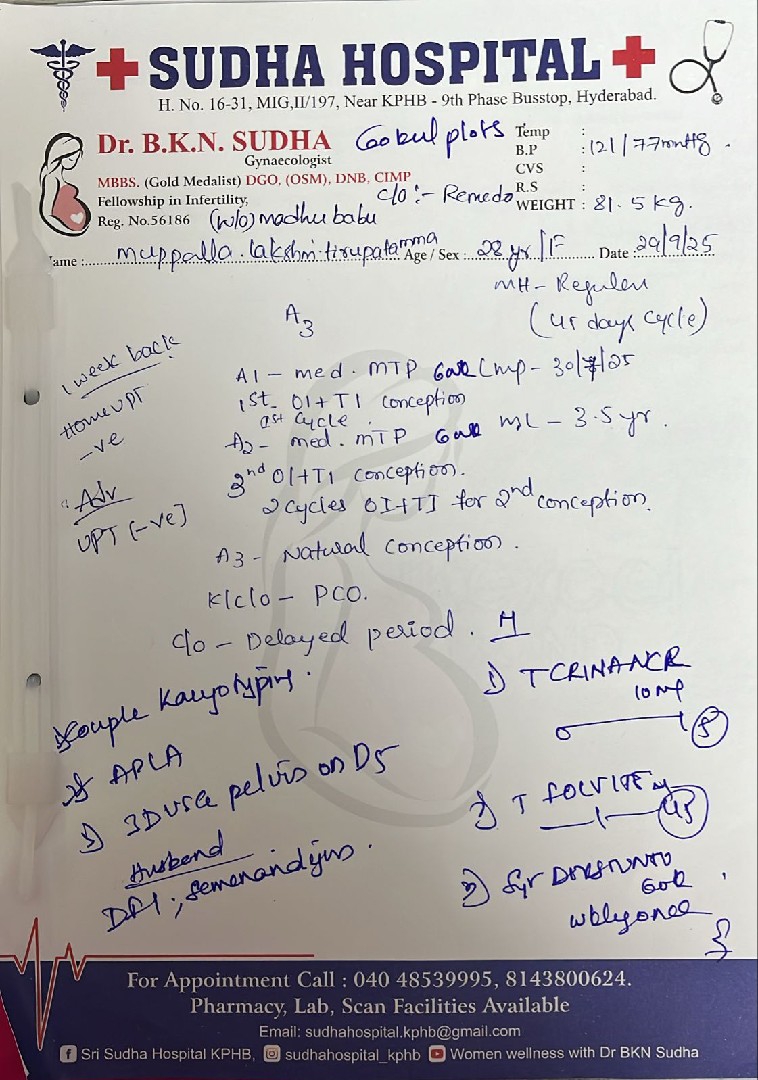 SUDHA HOSPITAL
H. No. 16-31, MIG,II/197, Near KPHB - 9th Phase Busstop, Hyderabad.
Dr. B.K.N. SUDHA
Gynaecologist
MBBS. (Gold Medalist) DGO, (OSM), DNB, CIMP
Fellowship in Infertility,
Reg. No.56186
Gokul plots
c/o :- Remedo
(w/o) madhu babu
Temp :
B.P : 121/77mmHg.
CVS :
R.S :
WEIGHT : 81.5 kg.
ame : muppalla. lakshmi tirupatamma Age / Sex : 28 yr/F Date : 29/9/25
MH - Regular
(45 days cycle)
A3
1 week back
Home UPT
-ve
Adv
UPT (-ve)
A1 - med. MTP Lmp - 30/7/25
1st OI + TI conception
1st cycle.
A2 - med. MTP ML - 3.5 yr.
2nd OI+TI conception.
2 cycles OI+TI for 2nd conception.
A3 - Natural conception.
K/c/o - PCO.
c/o - Delayed period.
Couple Karyotyping.
2) APLA
3) 3D USG pelvis on D5
Husband
DFI; Semenanalysis.
1) T CRINANCR
10mg
5
2) T FOLVITE
45
3) Syr
60k
wkly once
For Appointment Call : 040 48539995, 8143800624.
Pharmacy, Lab, Scan Facilities Available
Email: sudhahospital.kphb@gmail.com
Sri Sudha Hospital KPHB, sudhahospital_kphb Women wellness with Dr BKN Sudha